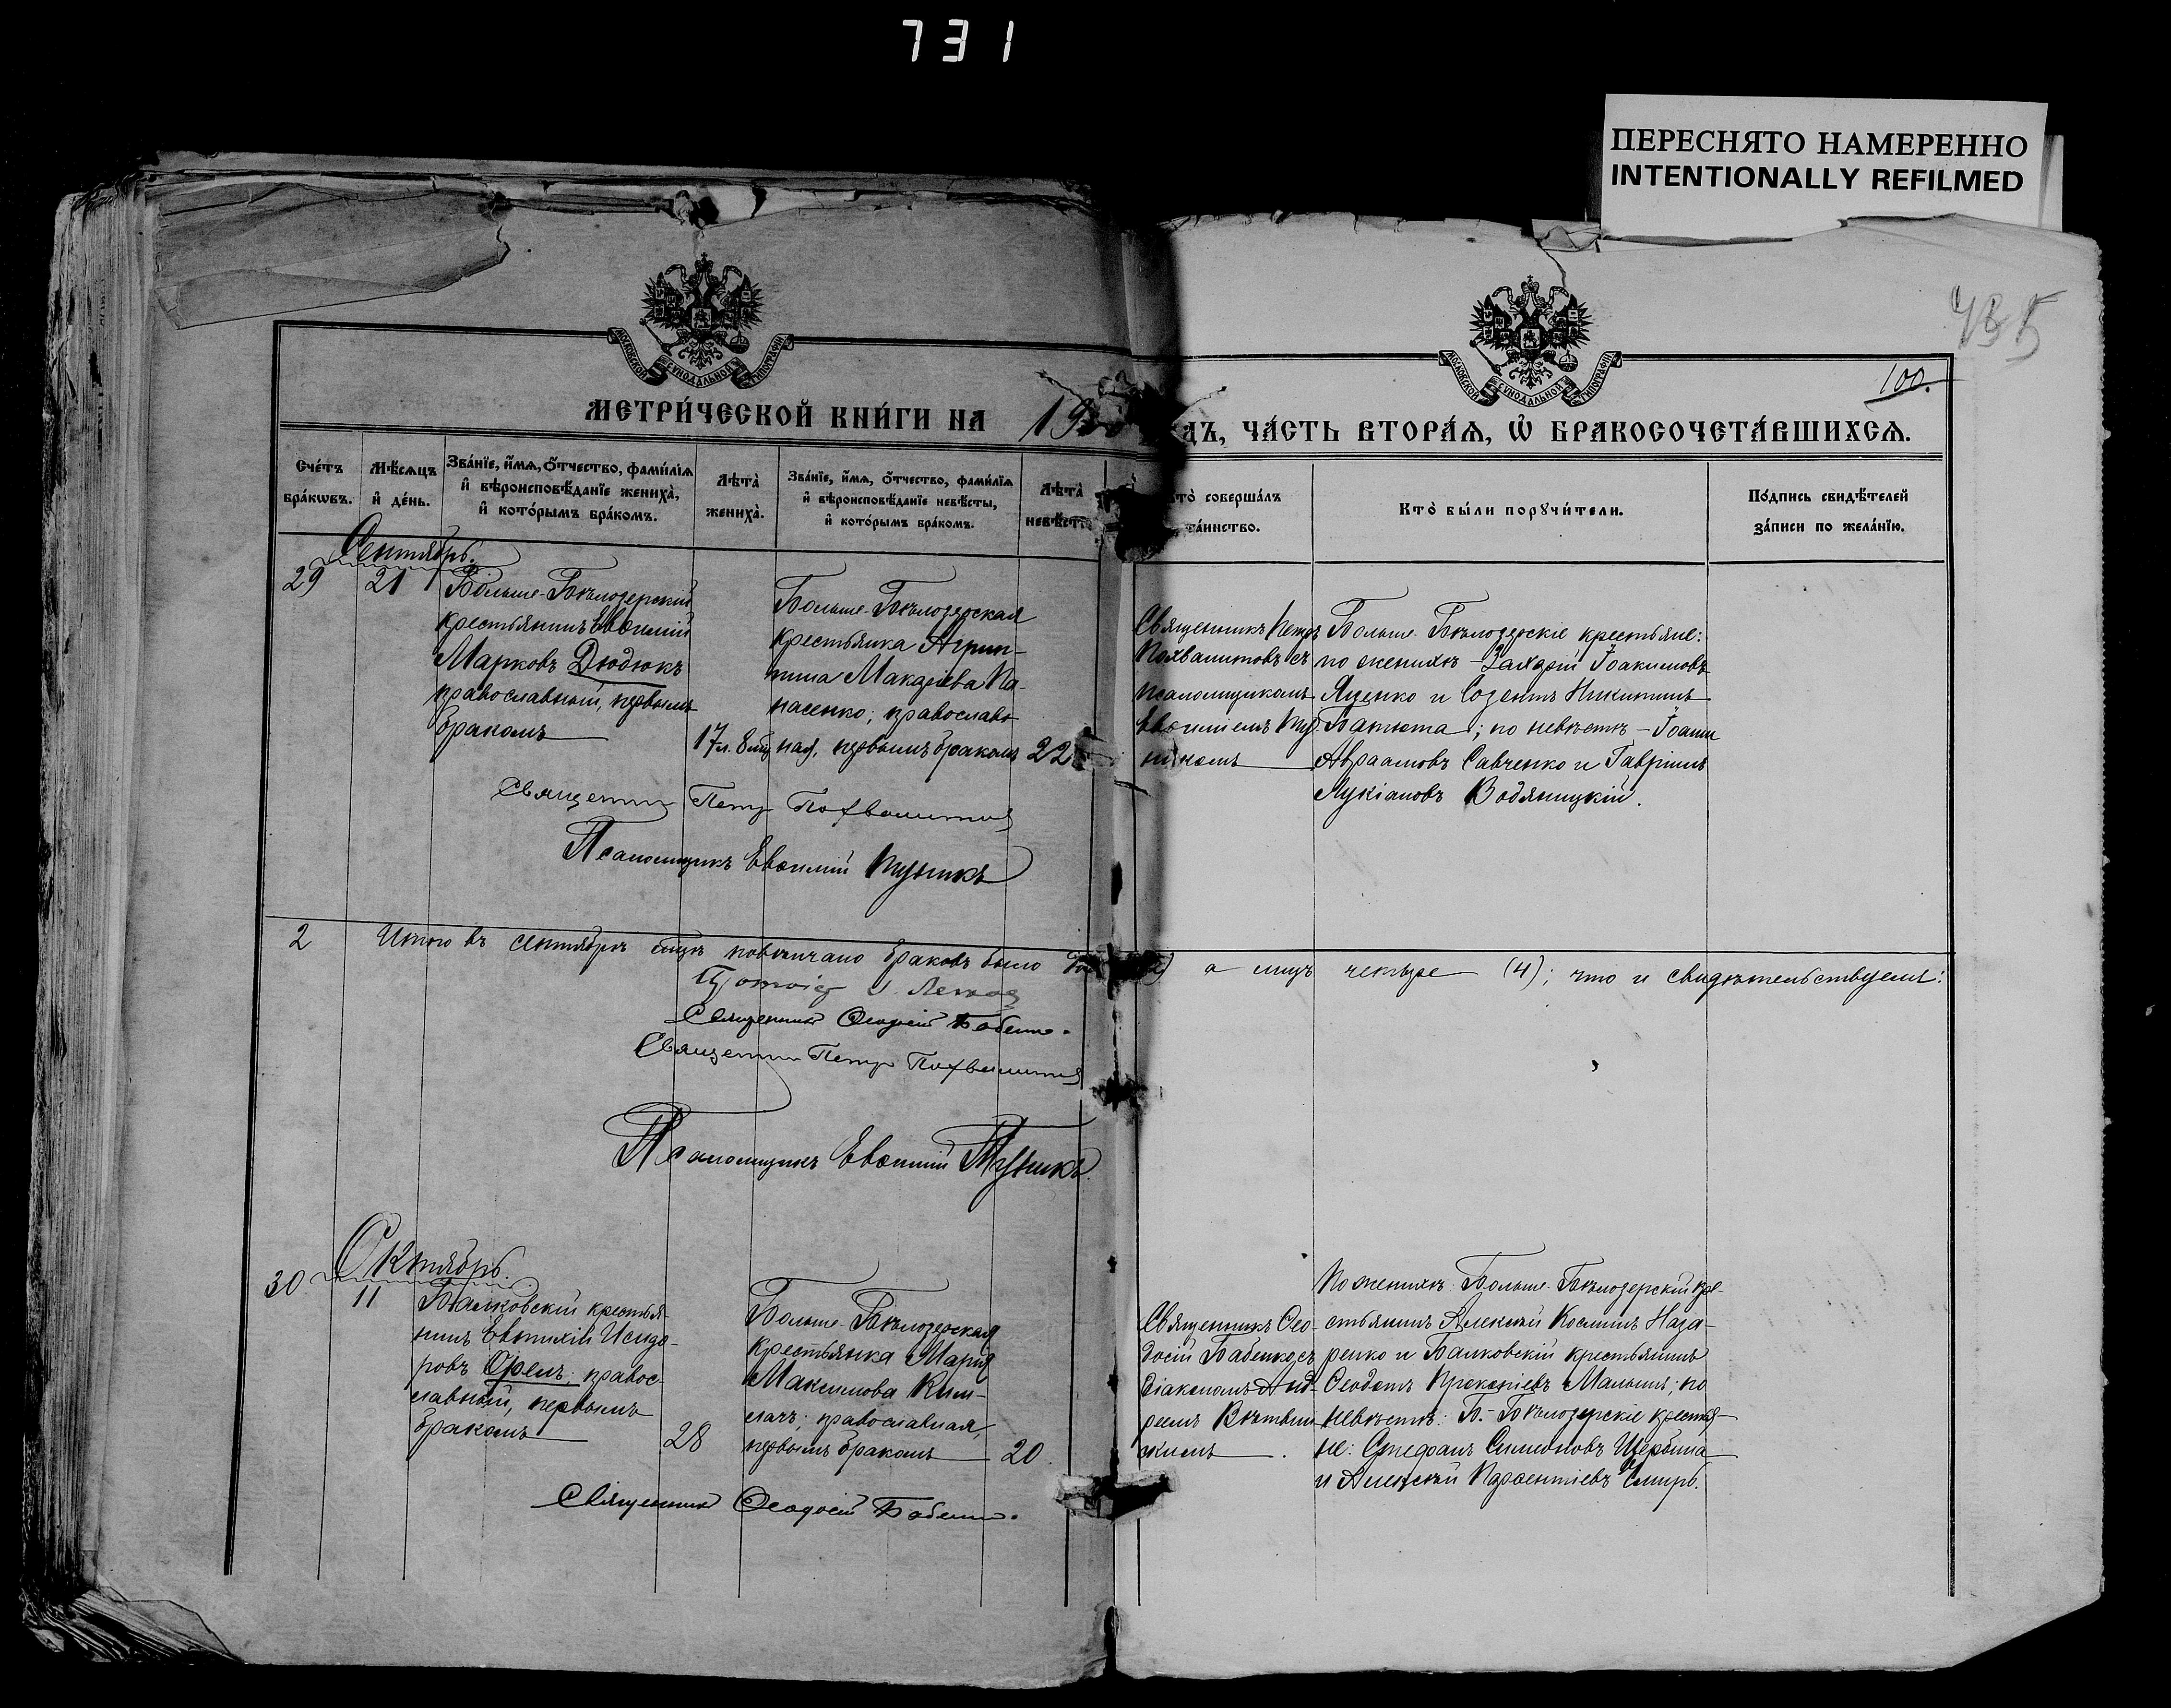 731
ПЕРЕСНЯТО НАМЕРЕННО
INTENTIONALLY REFILMED
МОСКОВСКОЙ СѴНОДАЛЬНОЙ ТИПОГРАФІИ
МОСКОВСКОЙ СѴНОДАЛЬНОЙ ТИПОГРАФІИ
100.
МЕТРИ́ЧЕСКОЙ КНИ́ГИ НА 19
ДЪ, ЧА́СТЬ ВТОРА́Я, Ѡ҆ БРАКОСОЧЕТА́ВШИХСЯ.
Сче́тъ бра́кωвъ.
Мѣ́сяцъ и҆ де́нь.
Зва́нїе, и҆́мя, ѻ҆́тчество, фами́лїя и҆ вѣроисповѣ́данїе жениха̀, и҆ кото́рымъ бра́комъ.
Лѣ́та̀ жениха̀.
Зва́нїе, и҆́мя, ѻ҆́тчество, фами́лїя и҆ вѣроисповѣ́данїе невѣ́сты, и҆ кото́рымъ бра́комъ.
Лѣ́та̀ невѣ́ст
то̀ соверша́лъ та́инство.
Кто̀ бы́ли порꙋчи́тели.
По́дпись свидѣ́телей за́писи по жела́нїю.
Сентябрь.
29
21
Больше-Бѣлозерскій
крестьянинъ Евѳимій
Марковъ Дюдюкъ
православный, первымъ
бракомъ
17 л. 8 мц
Больше-Бѣлозерская
крестьянка Агрип-
пина Макаріева Па-
насенко; православ-
ная, первымъ бракомъ
22
Священникъ Петръ
Похвалитовъ съ
псаломщикомъ
Евѳиміемъ
Больше-Бѣлозерскіе крестьяне:
по женихѣ – Захарій Іоакимовъ
Яценко и Созонтъ Никитинъ
по невѣстѣ – Іоаннъ
Авраамовъ Савченко и Гавріилъ
Лукіановъ Водяницкій.
Священникъ Петръ Похвалитовъ
Псаломщикъ Евѳимій
2
Итого въ сентябрѣ мцѣ повѣнчано браковъ было
а лицъ четыре (4); что и свидѣтельствуемъ:
Священникъ Ѳеодосій Бабенко.
Священникъ Петръ Похвалитовъ
Псаломщикъ Евѳимій
Октябрь.
30
11
Балковскій крестья-
нинъ Евтихій Исидо-
ровъ Орелъ; правос-
лавный, первымъ
бракомъ
28
Больше-Бѣлозерская
крестьянка Марія
Максимова Кли-
; православная,
первымъ бракомъ
20
Священникъ Ѳео-
досій Бабенко съ
діакономъ Анд-
реемъ
По женихѣ: Больше-Бѣлозерскій кре-
стьянинъ Алексій Косминъ Наза-
ренко и Балковскій крестьянинъ
Ѳеодотъ Прокопіевъ Малышъ; по
невѣстѣ: Б.-Бѣлозерскіе крестья-
не: Стефанъ Симеоновъ Щербина
и Алексій Парѳентіевъ Чмиръ.
Священникъ Ѳеодосій Бабенко.